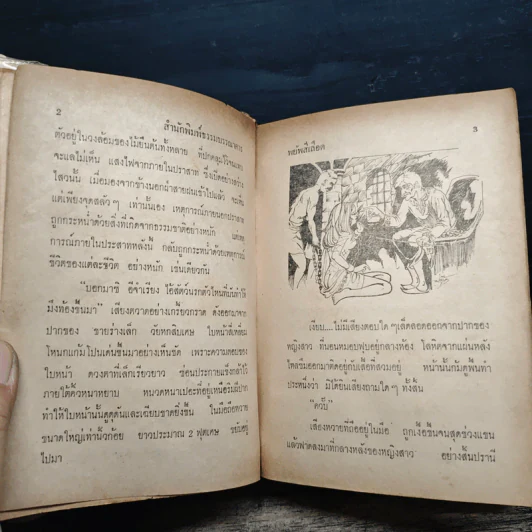 2
สำนักพิมพ์ธรรมบรรณาคาร
ตัวอยู่ในวงล้อมของไม้ยืนต้นทั้งหลาย ที่ปกคลุมไว้จนแทบ
จะแลไม่เห็น แสงไฟจากภายในปราสาท ซึ่งเปิดอย่างสว่าง
ไสวนั้น เมื่อมองจากข้างนอกฝ่าสายฝนเข้าไปแล้ว จะเห็น
แต่เพียงจุดสลัว ๆ เท่านั้นเอง เหตุการณ์ภายนอกปราสาท
ถูกกระหน่ำด้วยสิ่งที่เกิดจากธรรมชาติอย่างหนัก แต่เหตุ
การณ์ภายในประสาทหลังนี้ กลับถูกระหน่ำด้วยเหตุการณ์
ชีวิตของแต่ละชีวิต อย่างหนัก เช่นเดียวกัน
"บอกมาซิ อีจำเรียง ไอ้สัตว์นรกตัวไหนที่มันทำให้
มึงท้องขึ้นมา" เสียงตวาดอย่างเกรี้ยวกราด ดังออกมาจาก
ปากของ ชายร่างเล็ก วัยหกสิบเศษ ใบหน้าสี่เหลี่ยม
โหนกแก้มโปนเด่นขึ้นมาอย่างเห็นชัด เพราะความตอบของ
ใบหน้า ดวงตาที่เล็กเรียวยาว ซ่อนประกายแข็งกล้าไว้
ภายใต้คิ้วหนาหยาบ หนวดหนาเปอะที่อยู่เหนือริมฝีปาก
ทำให้ใบหน้านั้นดูดุดันและเฉียบขาดยิ่งขึ้น ในมือถือหวาย
ขนาดใหญ่เท่านิ้วก้อย ยาวประมาณ 2 ฟุตเศษ ขยับอยู่
ไปมา
3
หฤษีสีเลือด
เงียบ....ไม่มีเสียงตอบใด ๆ เล็ดลอดออกจากปากของ
หญิงสาว ที่นอนหมอบฟุบอยู่กลางห้อง โลหิตจากแผ่นหลัง
ไหลซึมออกมาติดอยู่กับเสื้อที่สวมอยู่ หน้านั้นก้มฟุบพื้นทำ
ประหนึ่งว่า มิได้ยินเสียงถามใด ๆ ทั้งสิ้น
"ควับ"
เสียงหวายที่ถืออยู่ในมือ ถูกเงื้อขึ้นจนสุดช่วงแขน
แล้วฟาดลงมาที่กลางหลังของหญิงสาว อย่างสิ้นปรานี